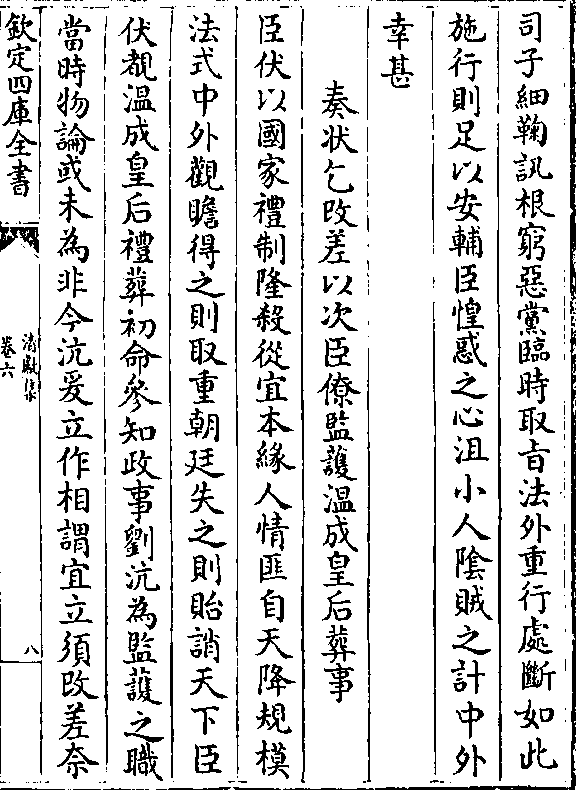 司子細鞠訊根窮惡黨臨時取㫖法外重行處斷如此
施行則足以安輔臣惶惑之心沮小人陰賊之計中外
幸甚
奏状乞改差以次臣僚監護溫成皇后葬事
臣伏以國家禮制隆殺從宜本緣人情匪自天降規模
法式中外觀瞻得之則取重朝廷失之則貽誚天下臣
伏覩溫成皇后禮葬初命參知政事劉沆為監護之職
當時物論或未為非今沆爰立作相謂宜立須改差奈
欽定四庫全書
卷六
八